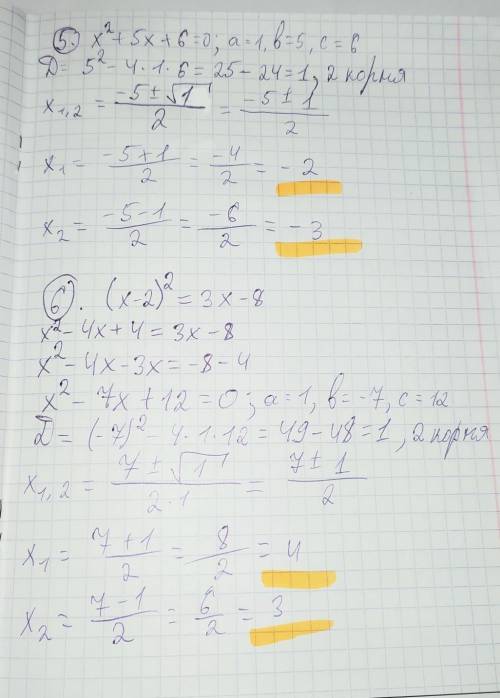 5. x² + 5x + 6 = 0; a = 1, b = 5, c = 6
Д = 5² - 4 · 1 · 6 = 25 - 24 = 1, 2 корня
x₁,₂ = (-5 ± √1)/2 = (-5 ± 1)/2
x₁ = (-5 + 1)/2 = -4/2 = -2
x₂ = (-5 - 1)/2 = -6/2 = -3
6. (x - 2)² = 3x - 8
x² - 4x + 4 = 3x - 8
x² - 4x - 3x = -8 - 4
x² - 7x + 12 = 0; a = 1, b = -7, c = 12
Д = (-7)² - 4 · 1 · 12 = 49 - 48 = 1, 2 корня
x₁,₂ = (7 ± √1)/(2 · 1) = (7 ± 1)/2
x₁ = (7 + 1)/2 = 8/2 = 4
x₂ = (7 - 1)/2 = 6/2 = 3